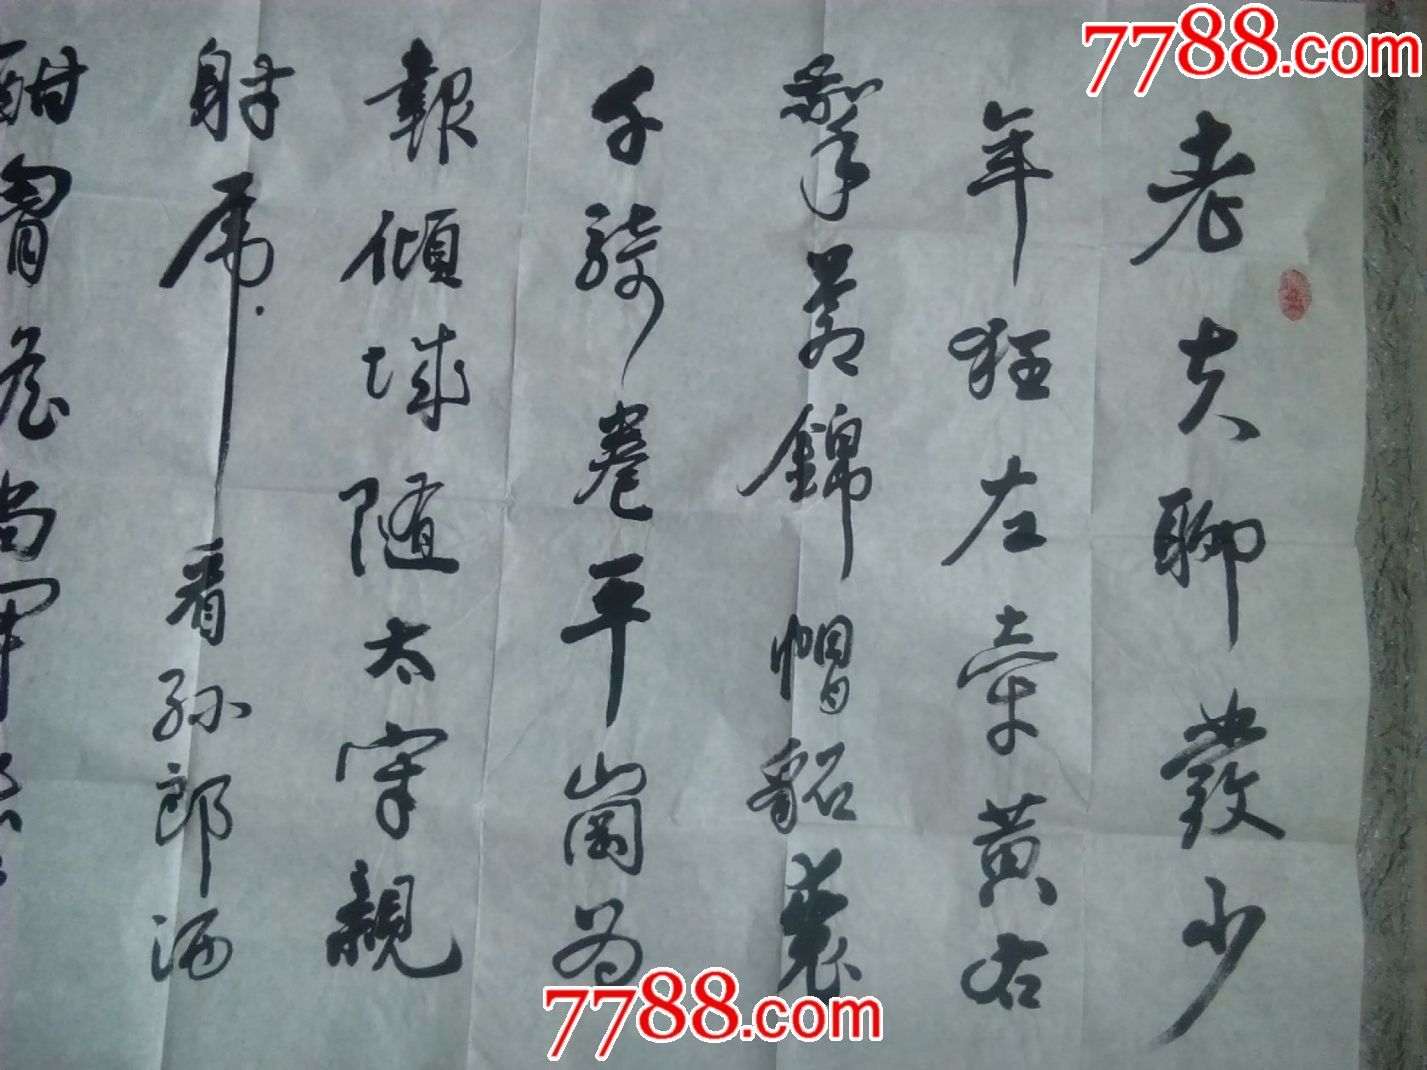 7788.com
老夫聊發少
年狂左牽黃右
擎蒼錦帽貂裘
千騎卷平崗為
報傾城隨太守親
射虎看孫郎酒
酣胷膽尚開
7788.com